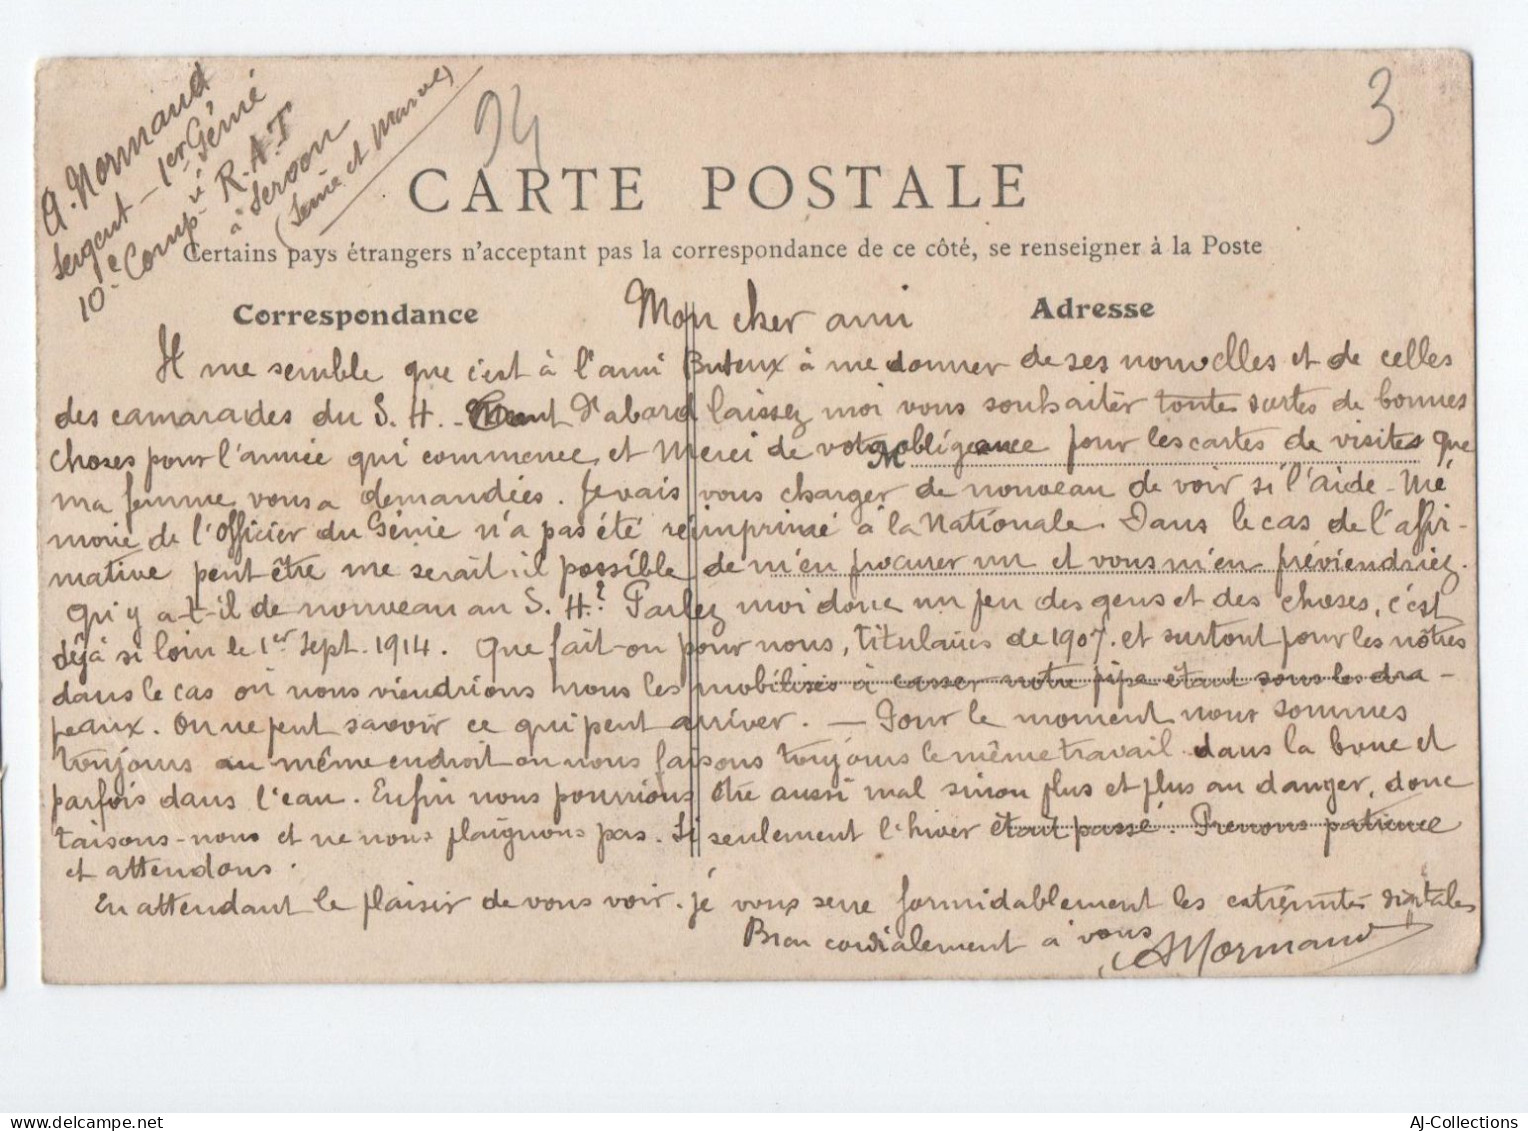 A. Normand
Sergent - 1er Génie
10e Compie R.A.T.
à Servon
(Seine et Marne)
94
3
CARTE POSTALE
Certains pays étrangers n'acceptant pas la correspondance de ce côté, se renseigner à la Poste
Correspondance
Adresse
Mon cher ami
Il me semble que c'est à l'ami Buteux à me donner de ses nouvelles et de celles
des camarades du S. H. - D'abord laissez moi vous souhaiter toutes sortes de bonnes
choses pour l'année qui commence, et Merci de votre obligeance pour les cartes de visites que
ma femme vous a demandées. Je vais vous charger de nouveau de voir si l'aide-Mé
moire de l'Officier du Génie n'a pas été réimprimé à la Nationale. Dans le cas de l'affir-
mative peut être me serait-il possible de m'en procurer un et vous m'en préviendriez.
Qu'y a-t-il de nouveau au S. H.? Parlez moi donc un peu des gens et des choses, c'est
déjà si loin le 1er Sept. 1914. Que fait-on pour nous, titulaires de 1907. et surtout pour les nôtres
dans le cas où nous viendrions nous les mobilisés à casser notre pipe étant sous les dra-
peaux. On ne peut savoir ce qui peut arriver. — Pour le moment nous sommes
toujours au même endroit ou nous faisons toujours le même travail dans la boue et
parfois dans l'eau. Enfin nous pourrions être aussi mal sinon plus et plus au danger, donc
taisons-nous et ne nous plaignons pas. Si seulement l'hiver était passé. Prenons patience
et attendons.
En attendant le plaisir de vous voir. je vous serre formidablement les extrémités
Bien cordialement à vous
A Normand
AJ-Collections